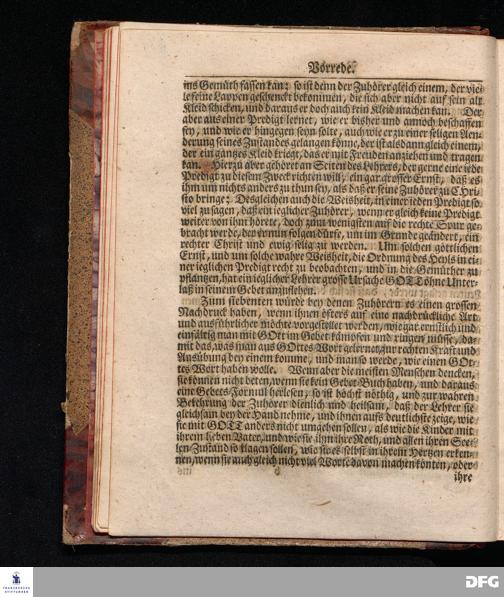 Vorrede.
ins Gemüth fassen kan: so ist denn der Zuhörer gleich einem, der viele
feine Lappen geschenckt bekommen, die sich aber nicht auf sein alt
Kleid schicken, und daraus er doch auch kein Kleid machen kan. Der
aber aus einer Predigt lernet, wie er bisher und annoch beschaffen
sey, und wie er hingegen seyn solte, auch wie er zu einer seligen Aen-
derung seines Zustandes gelangen könne, der ist alsdann gleich einem,
der ein gantzes Kleid kriegt, das er mit Freuden anziehen und tragen
kan. Hierzu aber gehöret an Seiten des Lehrers, der gerne eine jede
Predigt zu diesem Zweck richten will, ein gar grosser Ernst, daß es
ihm um nichts anders zu thun sey, als daß er seine Zuhörer zu CHri-
sto bringe: Desgleichen auch die Weisheit, in einer jeden Predigt so
viel zu sagen, daß ein ieglicher Zuhörer, wenn er gleich keine Predigt
weiter von ihm hörete, doch zum wenigsten auf die rechte Spur ge-
bracht werde, der er nun folgen dürfe, um im Grunde geändert, ein
rechter Christ und ewig selig zu werden. Um solchen göttlichen
Ernst, und um solche wahre Weisheit, die Ordnung des Heyls in ei-
ner ieglichen Predigt recht zu beobachten, und in die Gemüther zu
pflantzen, hat ein ieglicher Lehrer grosse Ursache GOTT ohne Unter-
laß in seinem Gebet anzuflehen.
Zum siebenten würde bey denen Zuhörern es einen grossen
Nachdruck haben, wenn ihnen öfters auf eine nachdrückliche Art
und ausführlicher möchte vorgestellet werden, wie gar ernstlich und
einfältig man mit GOtt im Gebet kämpfen und ringen müsse, da-
mit das, was man aus GOttes Wort gelernet, zur rechten Kraft und
Ausübung bey einem komme, und man so werde, wie einen GOt-
tes Wort haben wolle. Wenn aber die meisten Menschen dencken,
sie können nicht beten, wenn sie kein Gebet-Buch haben, und daraus
eine Gebets-Formul herlesen, so ist höchst nöthig, und zur wahren
Bekehrung der Zuhörer dienlich und heilsam, daß der Lehrer sie
gleichsam bey der Hand nehme, und ihnen aufs deutlichste zeige, wie
sie mit GOTT anders nicht umgehen sollen, als wie die Kinder mit
ihrem lieben Vater, und wie sie ihm ihre Noth, und allen ihren See-
len-Zustand so klagen sollen, wie sie es selbst in ihrem Hertzen erken-
nen, wenn sie auch gleich nicht viel Worte davon machen könten, oder
ihre
FRANCKESCHE
STIFTUNGEN
DFG